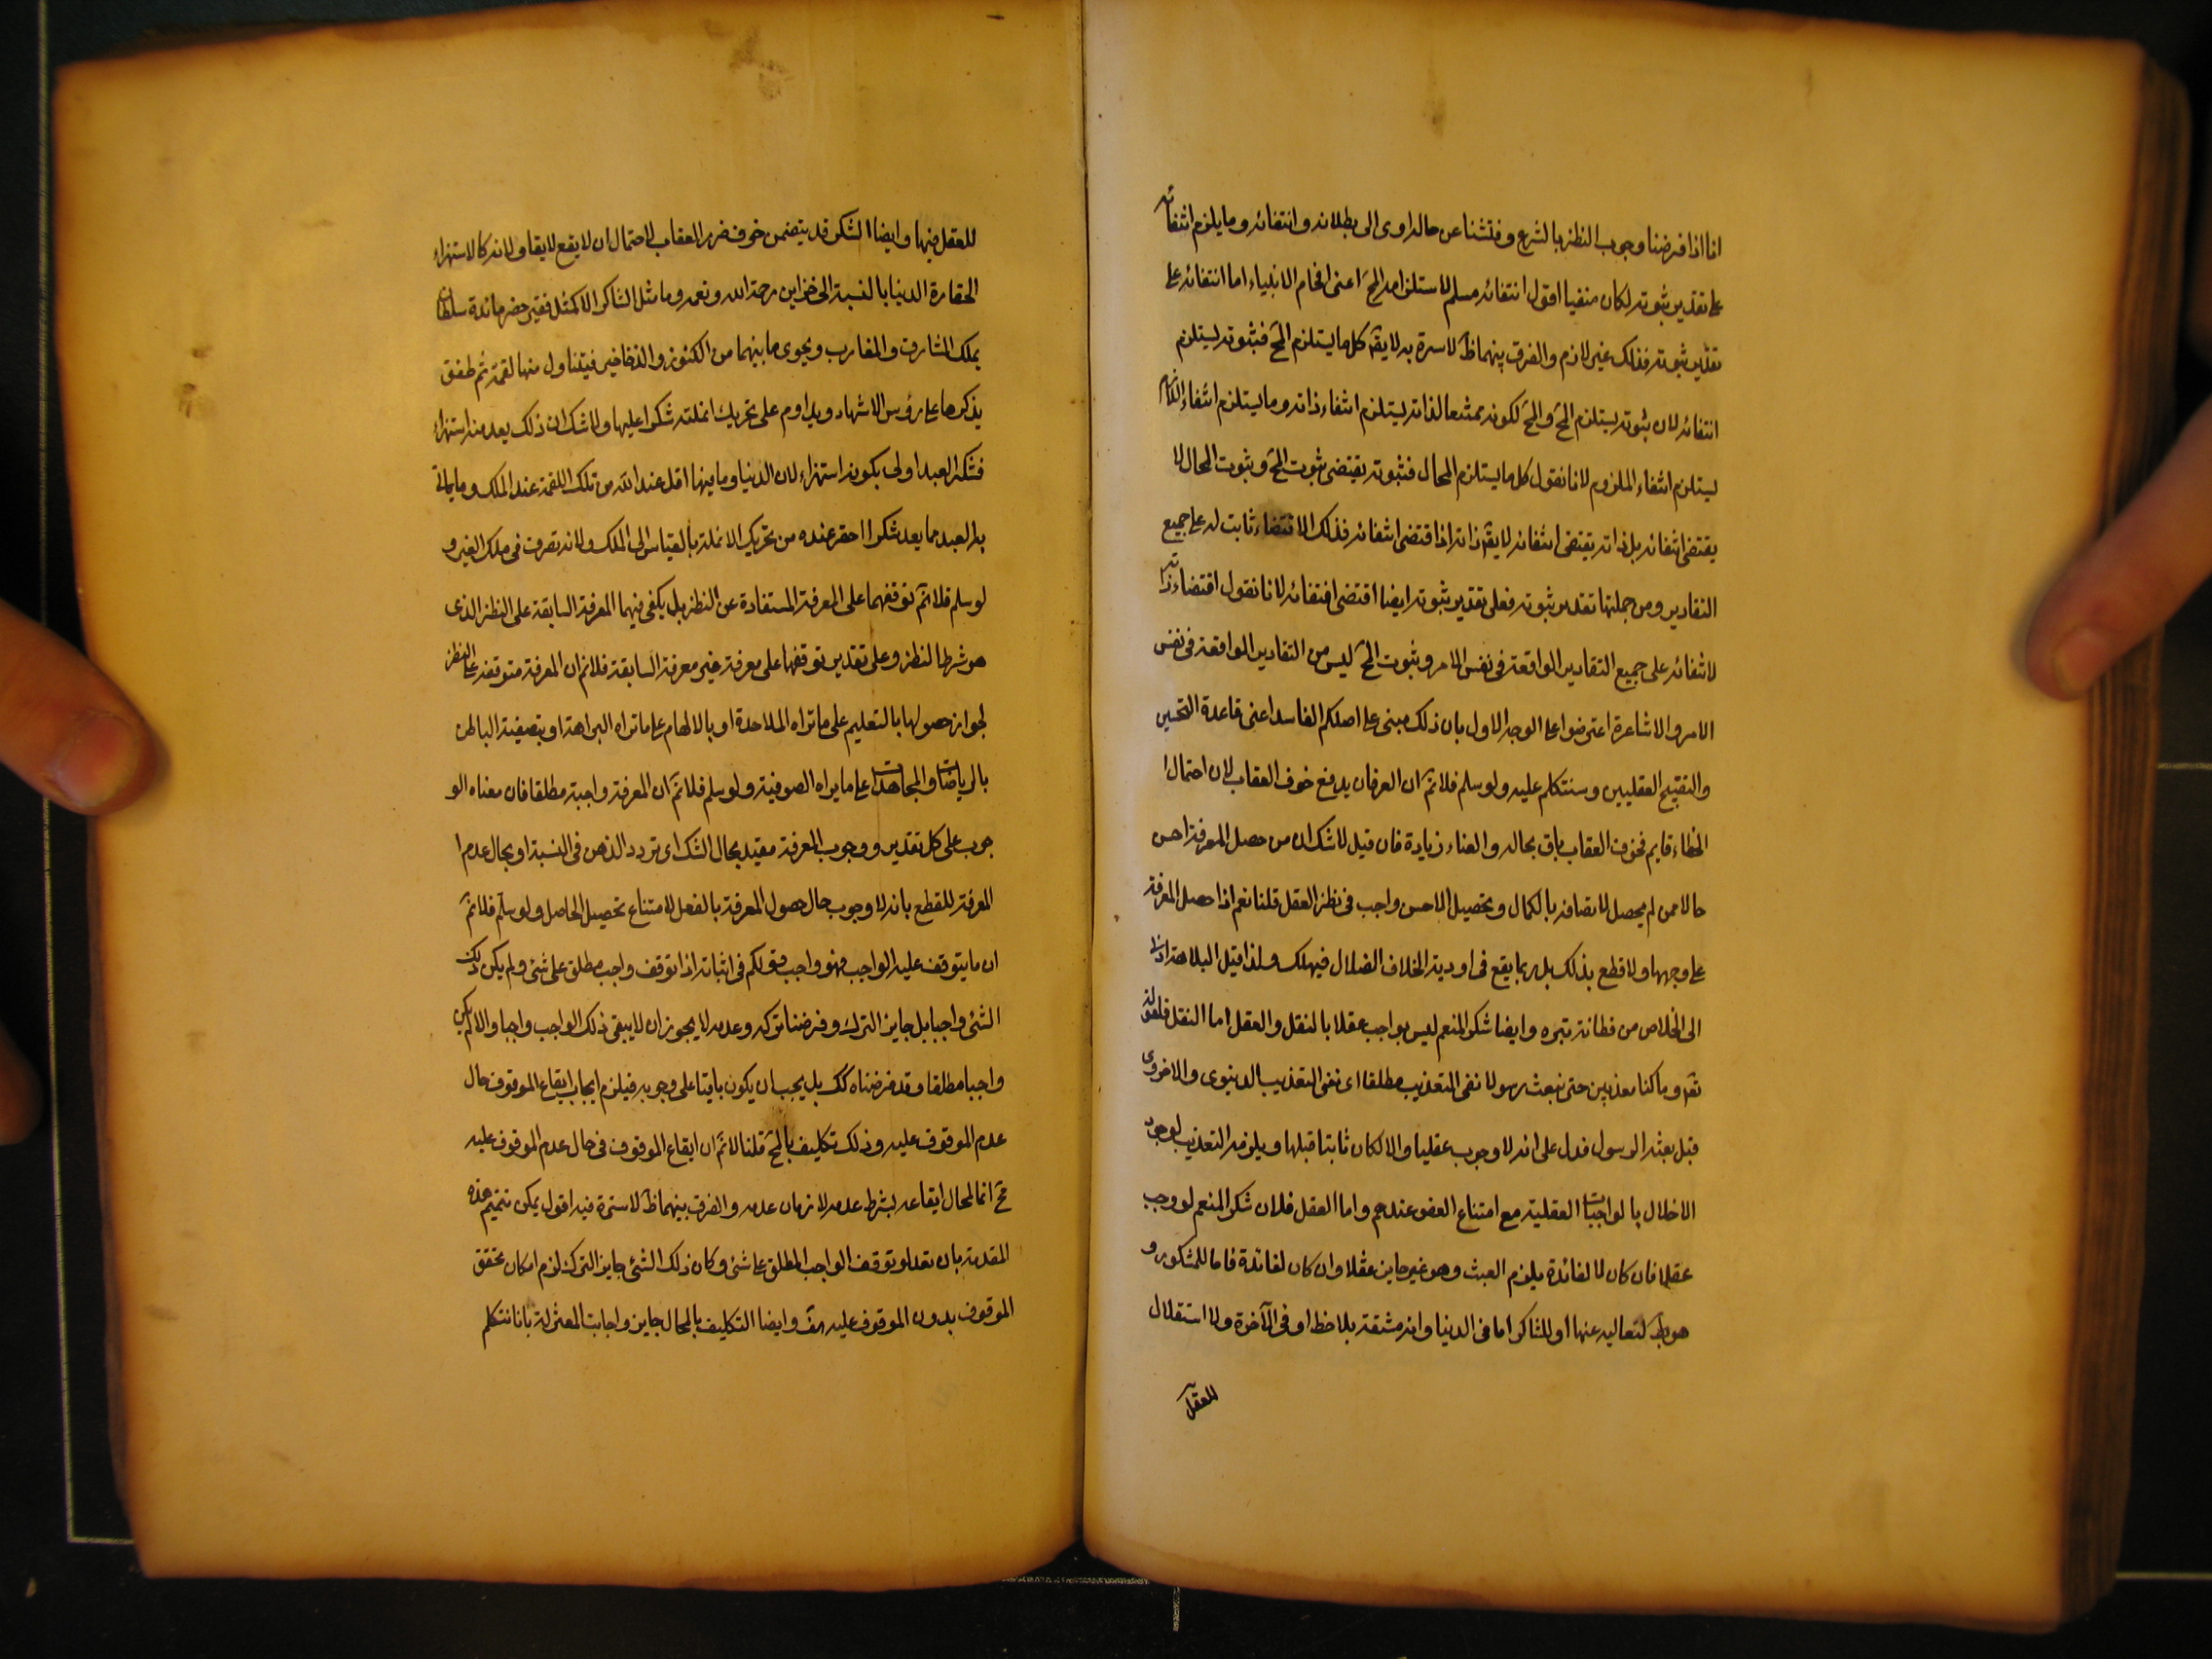 انا اذا فرضنا وجوب النظر بالشرع و فتشنا عن حاله ادى الى بطلانه و انتفائه و ما يلزم انتفائه
على تقدير ثبوته لكان منفيا اقول انتفائه مسلم لاستلزامه المح اعنى افحام الانبياء اما انتفائه على
تقدير ثبوته فذلك غير لازم و الفرق بينهما ظ لا سترة به لا يق كل ما يستلزم المح فثبوته يستلزم
انتفائه لان ثبوته يستلزم المح و المح لكونه ممتنعا لذاته يستلزم انتفاء ذاته و ما يستلزم انتفاء اللازم
يستلزم انتفاء الملزوم لانا نقول كل ما يستلزم المحال فثبوته يقتضى ثبوت المح و ثبوت المحال لا
يقتضى انتفائه بل ذاته يقتضى انتفائه لا يق ذاته اذا اقتضى انتفائه فذلك الاقتضاء ثابت له على جميع
التقادير و من جملتها تقدير ثبوته فعلى تقدير ثبوته ايضا اقتضى انتفائه لانا نقول اقتضاء ذاته
لانتفائه على جميع التقادير الواقعة فى نفس الامر و ثبوت المح ليس من التقادير الواقعة فى نفس
الامر و الاشاعرة اعترضوا على الوجه الاول بان ذلك مبنى على اصلكم الفاسد اعنى قاعدة التحسين
و التقبيح العقليين و سنتكلم عليه و لو سلم فلا نم ان العرفان يدفع خوف العقاب لان احتمال ا
لخطاء قايم فخوف العقاب باق بحاله و العناء زيادة فان قيل لا شك ان من حصل المعرفة احسن
حالا ممن لم يحصل لاتصافه بالكمال و تحصيل الاحسن واجب فى نظر العقل قلنا نعم اذا حصل المعرفة
على وجهها و لا قطع بذلك بل ربما يقع فى اودية الخلاف الضلال فيهلك و لذا قيل البلاهة ادنى
الى الخلاص من فطانة بتره و ايضا شكر المنعم ليس بواجب عقلا بالنقل و العقل اما النقل فلقوله
تع و ما كنا معذبين حتى نبعث رسولا نفى التعذيب مطلقا اى نفى التعذيب الدنيوى و الاخروى
قبل بعثة الرسول فدل على انه لا وجوب عقليا و الا لكان ثابتا قبلها و يلزمه التعذيب لوجود
الاخلال بالواجبات العقلية مع امتناع العفو عندهم و اما العقل فلان شكر المنعم لو وجب
عقلا فان كان لا لفائدة يلزم العبث و هو غير جايز عقلا و ان كان لفائدة فاما للمشكور و
هو بط لتعاليه عنها او للشاكر اما فى الدنيا و انه مشقة بلا حظ او فى الآخرة و لا استقلال
للعقل
للعقل فيها و ايضا الشكر قد يتضمن خوف ضرر العقاب لاحتمال ان لا يقع لايقا و لانه كالاستهزاء
الحقارة الدنيا بالنسبة الى خزاين رحمة الله و نعمه و ما مثل الشاكر الا كمثل فقير حضر مائدة سلطان
يملك المشارق و المغارب و يحوى ما بينهما من الكنوز و الذخاخير فيتناول منها لقمة ثم طفق
يذكرها على رؤس الاشهاد و يداوم على تحريك انملته شكرا عليها و لا شك ان ذلك يعد منه استهزاء
فشكر العبد اولى بكونه استهزاء لان الدنيا و ما فيها اقل عند الله من تلك اللقمة عند الملك و ما ياتى
به العبد مما يعد شكرا احقر عنده من تحريك الانملة بالقياس الى الملك و لانه تصرف فى ملك الغير و
لو سلم فلا نم توقفهما على المعرفة المستفادة عن النظر بل يكفى فيهما المعرفة السابقة على النظر الذى
هو شرط النظر و على تقدير توقفها على معرفة غير معرفة السابقة فلا نم ان المعرفة متوقفة على النظر
لجواز حصولها بالتعليم على ما تراه الملاحدة او بالالهام على ما تراه البراهمة او بتصفية الباطن
بالرياضات و المجاهدات على ما يراه الصوفية و لو سلم فلا نم ان المعرفة واجبة مطلقا فان معناه الو
جوب على كل تقدير و وجوب المعرفة مقيد بحال الشك اى تردد الذهن فى النسبة او بحال عدم ا
لمعرفة للقطع بانه لا وجوب حال حصول المعرفة بالفعل لامتناع تحصيل الحاصل و لو سلم فلا نم
ان ما يتوقف عليه الواجب فهو واجب قولكم فى اثباته اذا توقف واجب مطلق على شئ و لم يكن ذلك
الشئ واجبا بل جايز الترك و فرضنا تركه و عدمه لا يجوز ان لا يبقى ذلك الواجب واجبا و الا لم يكن
واجبا مطلقا و قد فرضناه كك بل يجب ان يكون باقيا على وجوبه فيلزم ايجاب ايقاع الموقوف حال
عدم الموقوف عليه و ذلك تكليف بالمح قلنا لا نم ان ايقاع الموقوف فى حال عدم الموقوف عليه
مح انما المحال ايقاعه بشرط عدمه لا زمان عدمه و الفرق بينهما ظ لا سترة فيه اقول يمكن تتميم هذه
المقدمة بان نقد لو توقف الواجب المطلق على شئ و كان ذلك الشئ جايز الترك لزم امكان تحقق
الموقوف بدون الموقوف عليه هف و ايضا التكليف بالمحال جايز و اجابت المعتزلة بانا نتكلم